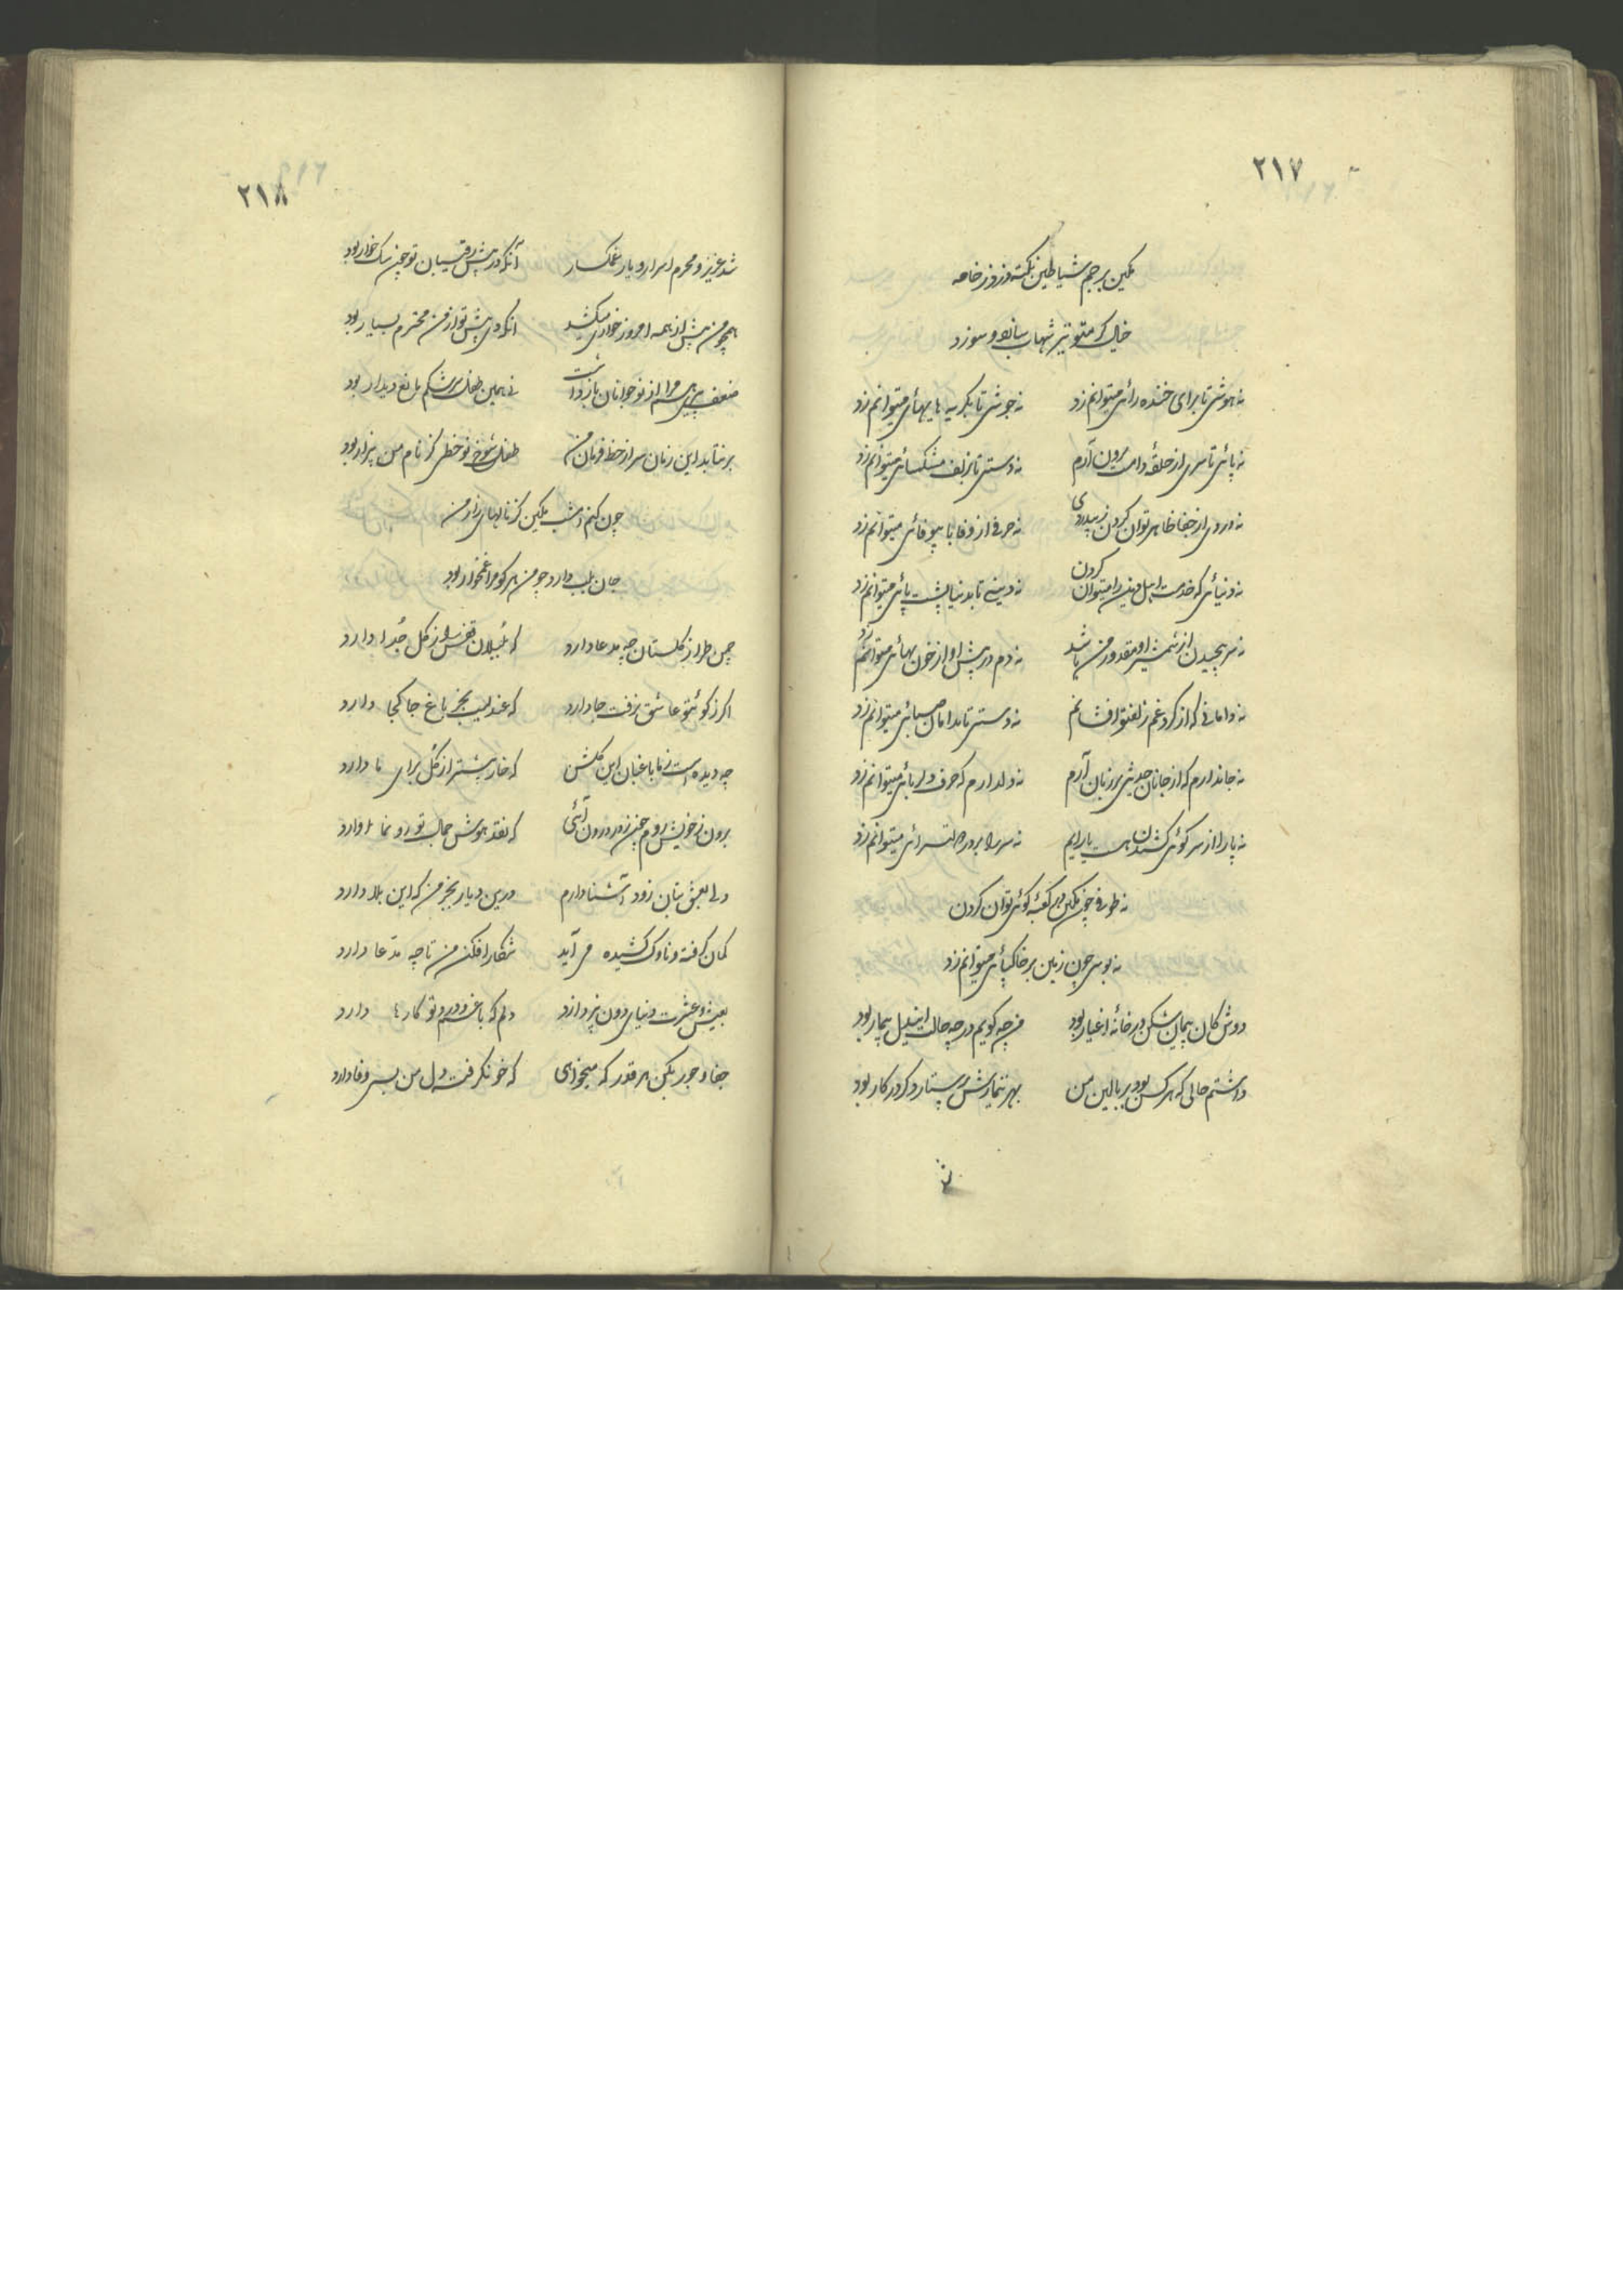 ٢١٧
تمکین برجم شیاطین نکته دزد ز خامه
نه هوشی تا برای خنده رائی میتوانم زد نه جوشی تا بگریه هایهائی میتوانم زد
نه پائی تا سری از حلقهٔ دامت برون آرم نه دستی تا بزلف مشکسائی میتوانم زد
نه دردی از جفا ظاهر توان کردن ز بیدردی نه حرفی از وفا با بیوفائی میتوانم زد
نه دنیائی که خدمت اهل دین را میتوان کردن نه دینی تا بدنیا پشت پائی میتوانم زد
نه سر پیچیدن از شمشیر او مقدور من باشد نه دم در پیش او از خون بهائی میتوانم زد
نه دامانی که از گرد غم زلف تو افشانم نه دستی تا بدامان صبائی میتوانم زد
نه جاندارم که از جانان حدیثی بر زبان آرم نه دلدارم که حرف دلربائی میتوانم زد
نه پا را از سر کوئی کشیدن هست یارایم نه سر را بر در دولتسرائی میتوانم زد
نه طوفی چون تمکین در کعبهٔ کوئی توان کردن
نه بوسی چون زمین بر خاکپائی میتوانم زد
دوش کان پیمان شکن در خانهٔ اغیار بود من چه گویم در چه حالت ایندل بیمار بود
داشتم حالی که هر کس بود بر بالین من بهر تیمارش پرستار دگر در کار بود
٢١٨
شد عزیز و محرم اسرار و یار غمگسار آنکه در پیش رقیبان تو چون سگ خوار بود
همچو من پیش از همه امروز خواری میکشد آنکه دی پیش تو از من محترم بسیار بود
ضعف پیری هم مرا از نوجوانان باز داشت نی همین طفل سرشکم مانع دیدار بود
برنتابد این زمان سر از خط فرمان من طفل شوخ نوخطی کز نام من بیزار بود
چون کنم امشب تمکین کز نالهای زار من
جان بلب دارد چو من هر کو مرا غمخوار بود
چمن طراز گلستان چه مدعا دارد که بلبلان قفس را ز گل جدا دارد
اگر ز کوئی تو عاشق نرفت جا دارد که عندلیب بجز باغ جا کجا دارد
چه دیده است ز ما باغبان این گلشن که خار بیشتر از گل برای ما دارد
برون ز خویش روم چون ز در درون آئی که نقد هوش جمال تو رو نما دارد
دلی بعشق بتان زود آشنا دارم درین دیار بجز من که این بلا دارد
کمان گرفته و ناوک کشیده می آید شکار افکن من تا چه مدعا دارد
بعیش و عشرت دنیای دون نپردازد دلم که با غم و درد تو کارها دارد
جفا و جور بکن هر قدر که میخواهی که خو نگرفت دل من بسی وفا دارد